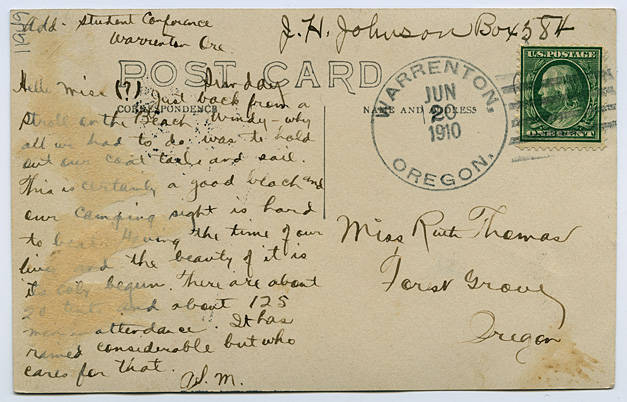 Add. Student Conference
Warrenton Ore.
J. H. Johnson Box 584
POST CARD
CORRESPONDENCE
NAME AND ADDRESS
WARRENTON,
JUN
20
1910
OREGON.
U.S. POSTAGE
ONE CENT
Hello Miss (?)
Just back from a
stroll on the Beach. Windy - why
all we had to do was to hold
out our coat tails and sail.
This is certainly a good beach and
our camping sight is hard
to beat. Having the time of our
lives and the beauty of it is
its only begun. There are about
20 tents and about 125
men in attendance. It has
rained considerable but who
cares for that.
A. S. M.
Miss Ruth Thomas
Forst Grove
Oregon